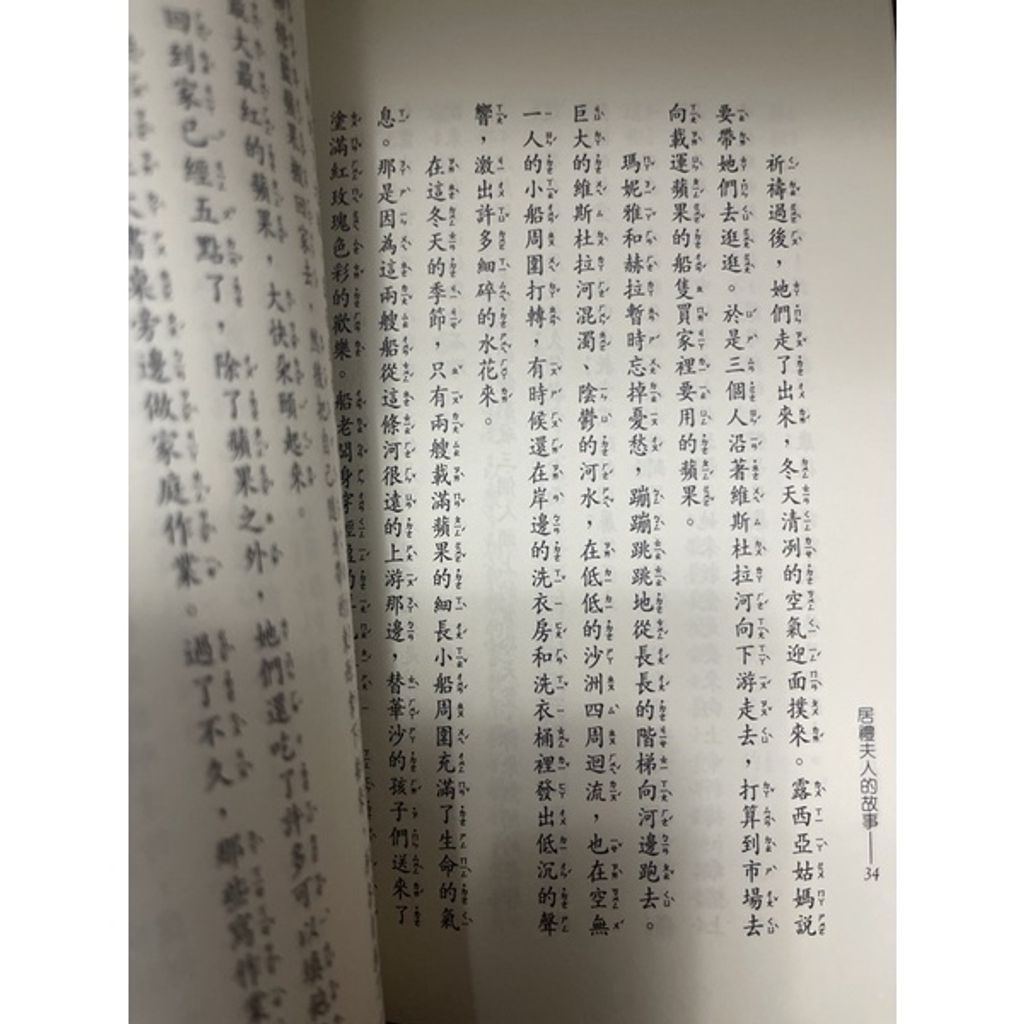 居禮夫人的故事——34
祈禱過後，她們走了出來，冬天清冽的空氣迎面撲來。露西亞姑媽說
要帶她們去逛逛。於是三個人沿著維斯杜拉河向下游走去，打算到市場去
向載運蘋果的船隻買家裡要用的蘋果。
瑪妮雅和赫拉暫時忘掉憂愁，蹦蹦跳跳地從長長的階梯向河邊跑去。
巨大的維斯杜拉河混濁、陰鬱的河水，在低低的沙洲四周迴流，也在空無
一人的小船周圍打轉，有時候還在岸邊的洗衣房和洗衣桶裡發出低沉的聲
響，激出許多細碎的水花來。
在這冬天的季節，只有兩艘載滿蘋果的細長小船周圍充滿了生命的氣
息。那是因為這兩艘船從這條河很遠的上游那邊，替華沙的孩子們送來了
塗滿紅玫瑰色彩的歡樂。船老闆身穿
最大最紅的蘋果，大快朵頤起來。
回到家已經五點了，除了蘋果之外，她們還吃了許多可以
旁邊做家庭作業。過了不久，那些寫作業